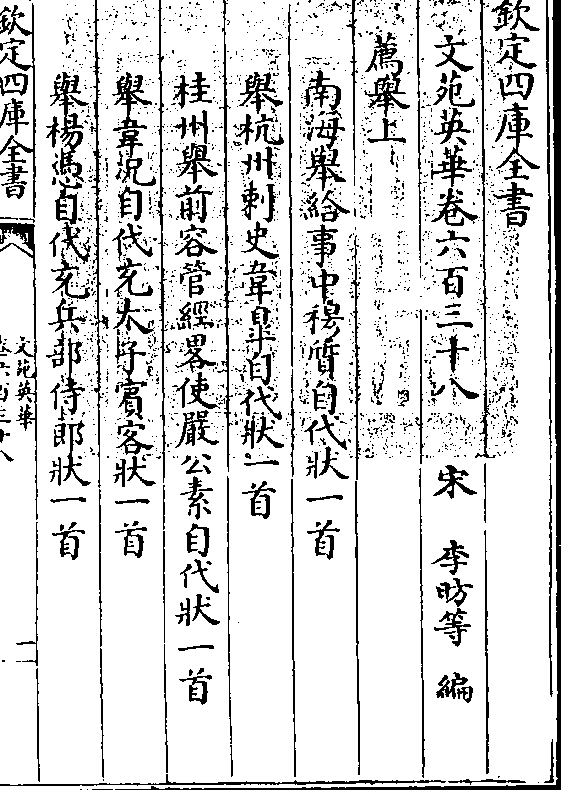 欽定四庫全書
文苑英華卷六百三十八
宋 李昉等 編
薦舉上
南海舉給事中穆質自代狀一首
舉杭州刺史韋臯自代狀一首
桂州舉前容管經畧使嚴公素自代狀一首
舉韋況自代充太子賓客狀一首
舉楊憑自代充兵部侍郎狀一首
欽定四庫全書
文苑英華
卷六百三十八
一